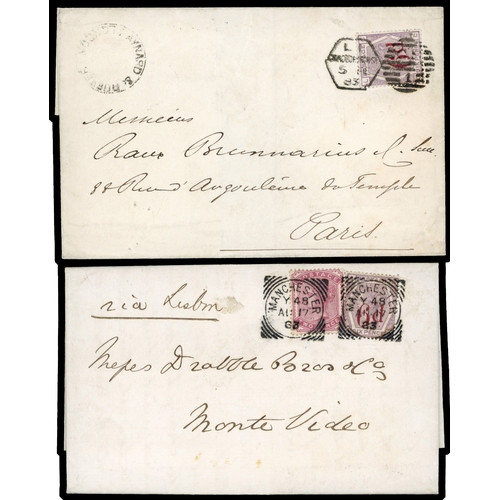 L
83
6d
Messieurs
Raux Brunnarius & C.
88 Rue d'Angoulême du Temple
Paris.
via Lisbon
MANCHESTER
Y 48
AU 17
83
MANCHESTER
Y 48
83
6d
Messrs Drabble Bros & Co
Monte Video